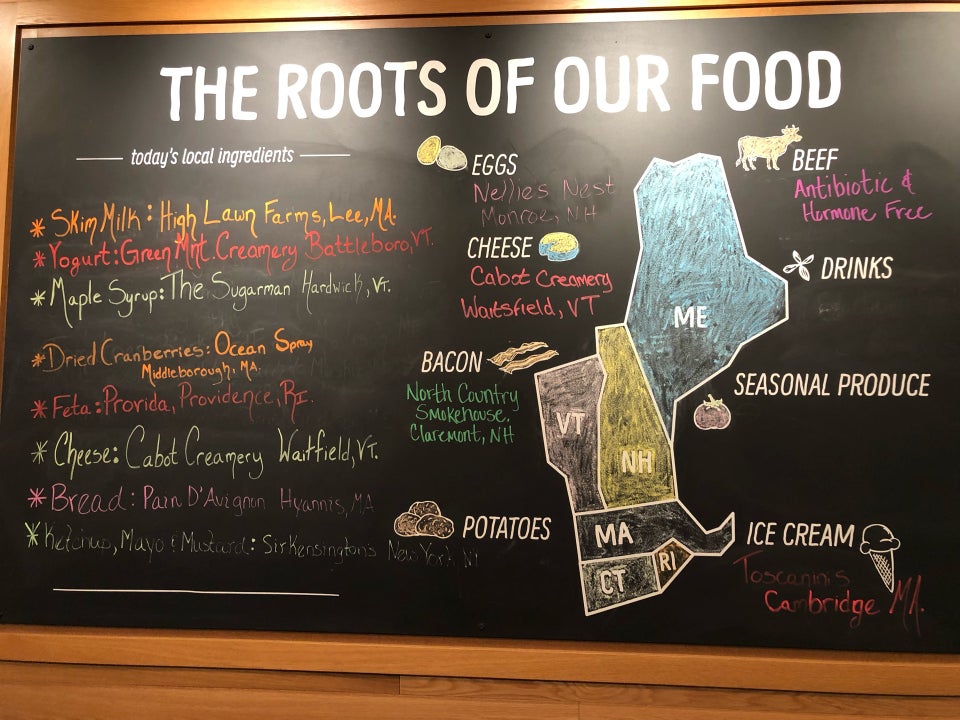 THE ROOTS OF OUR FOOD
today's local ingredients
* Skim Milk: High Lawn Farms, Lee, MA.
* Yogurt: Green Mnt. Creamery Battleboro, VT.
* Maple Syrup: The Sugarman Hardwick, VT.
* Dried Cranberries: Ocean Spray
Middleborough, MA.
* Feta: Provida, Providence, RI.
* Cheese: Cabot Creamery Waitfield, VT.
* Bread: Pain D'Avignon Hyannis, MA
* Ketchup, Mayo & Mustard: Sir Kensington's New York, NY
EGGS
Nellies Nest
Monroe, NH
CHEESE
Cabot Creamery
Waitsfield, VT
BACON
North Country
Smokehouse,
Claremont, NH
POTATOES
BEEF
Antibiotic &
Hormone Free
DRINKS
SEASONAL PRODUCE
ICE CREAM
Toscaninis
Cambridge MA.
ME
VT
NH
MA
CT
RI